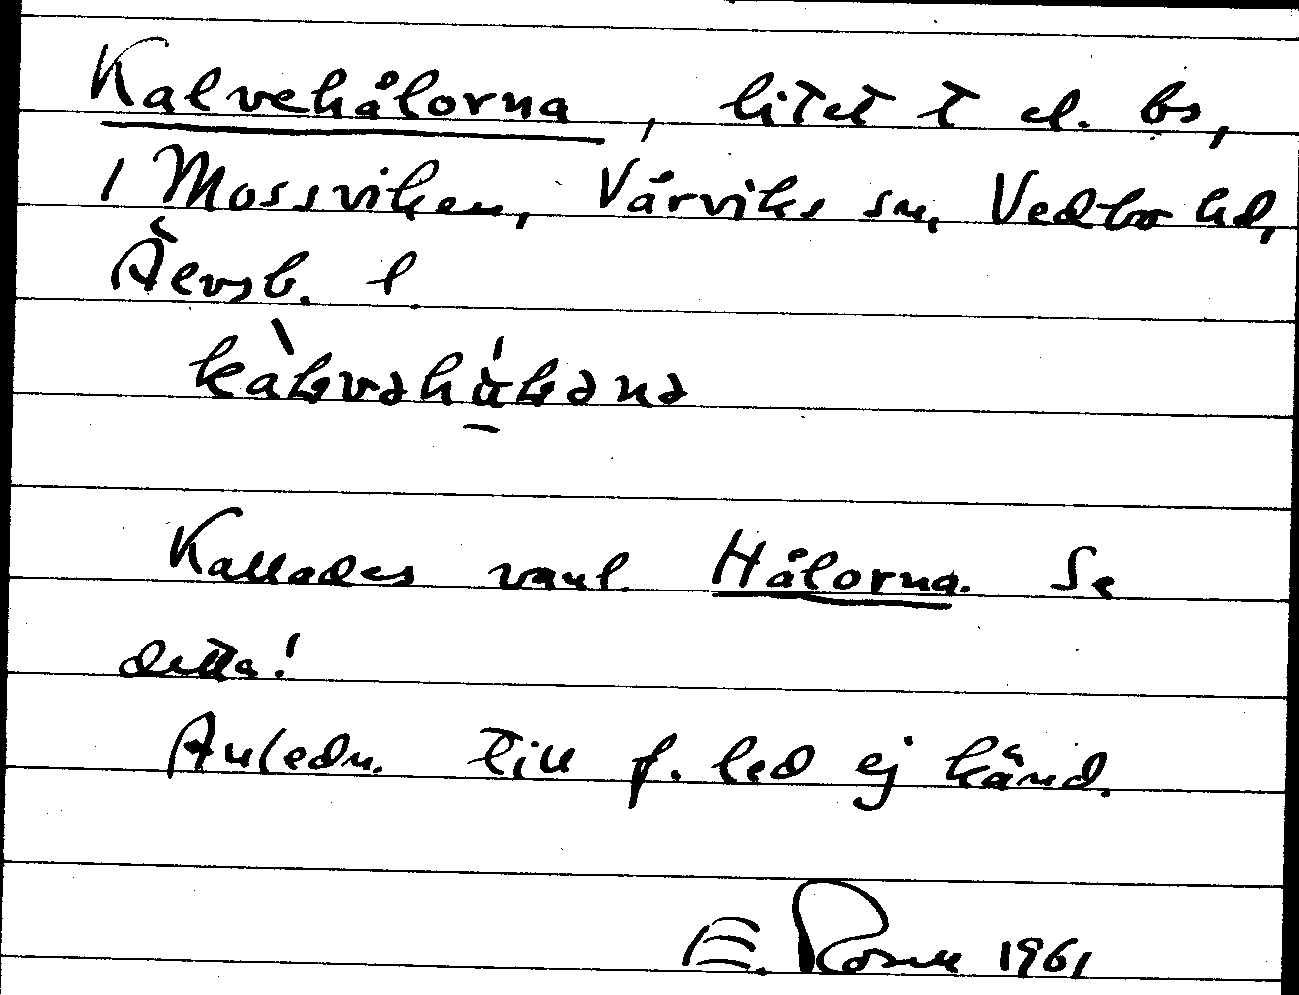 Kalvehålorna, litet t el. bs,
i Mossviken, Vårviks sn, Vedbo hd,
Älvsb. l.
Kallades vanl. Hålorna. Se
detta!
Anledn. till f. led ej känd.
E. Rosell 1961